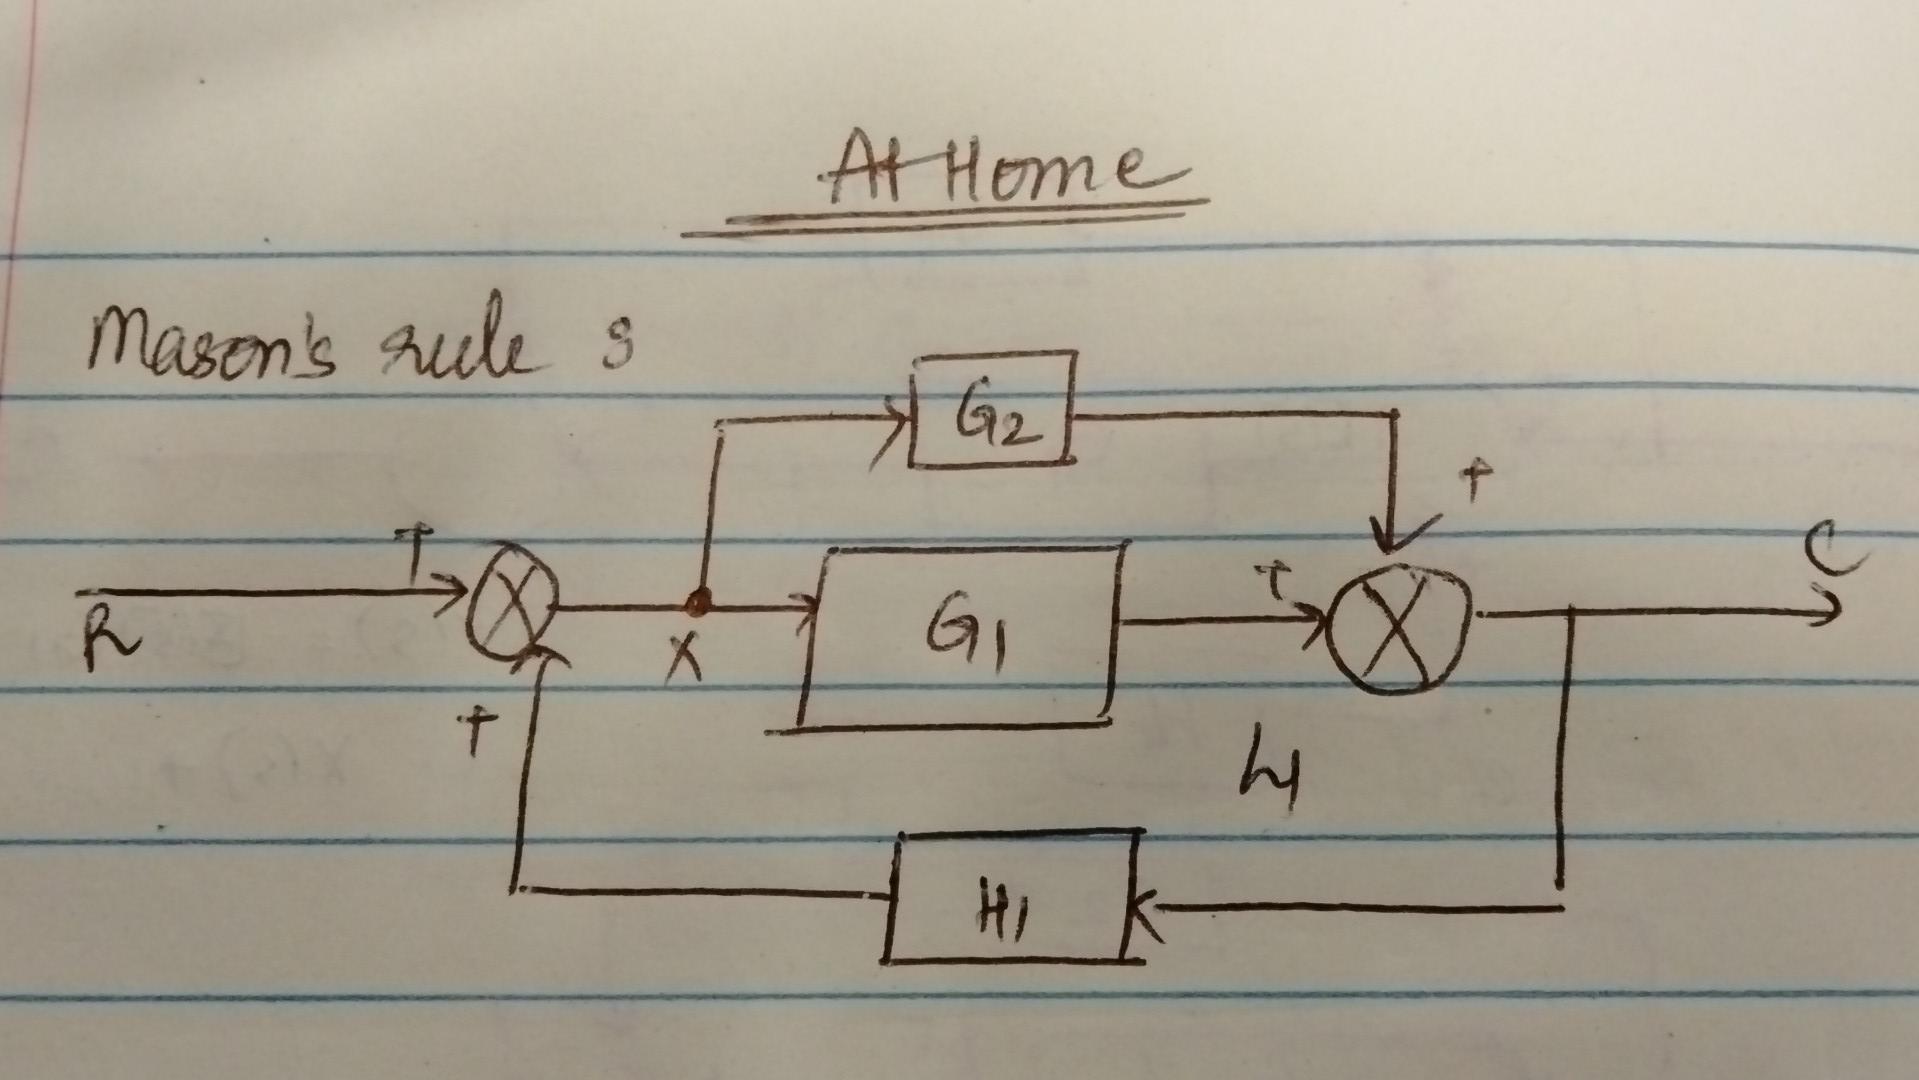 At Home
Mason's rule :
G2
+
+
C
R
X
G1
+
+
L1
H1